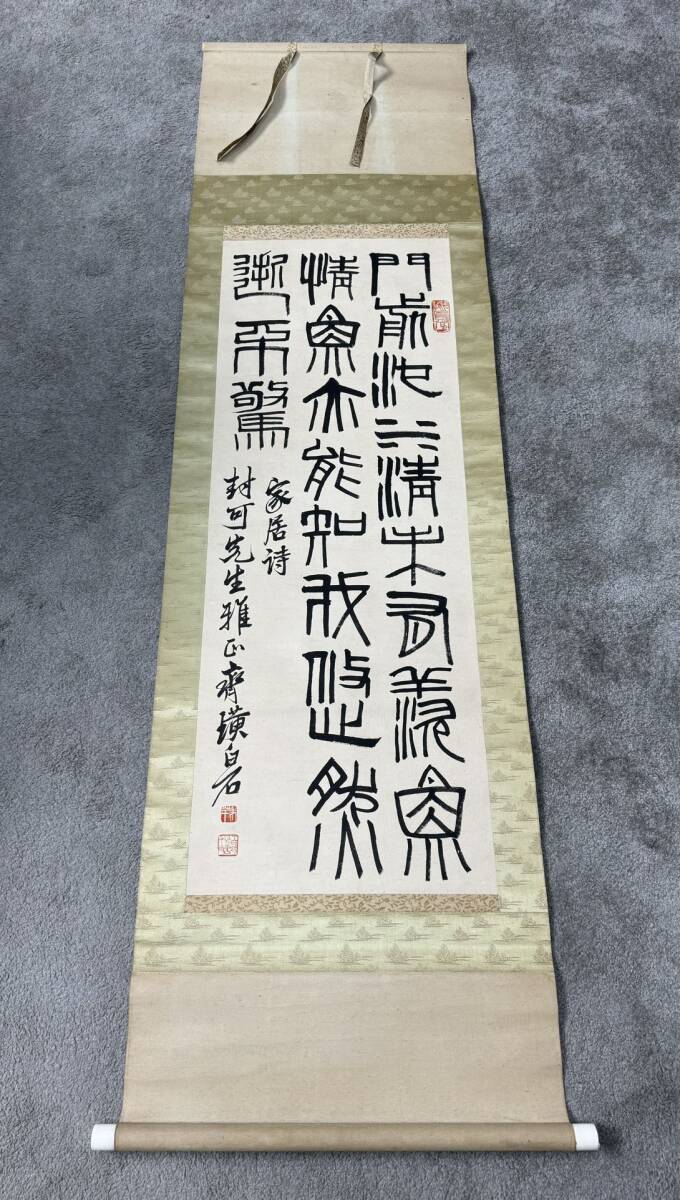 門前池水清未有羨魚
情魚亦能知我悠然
逝不驚
家居诗
封可先生雅正齊璜白石